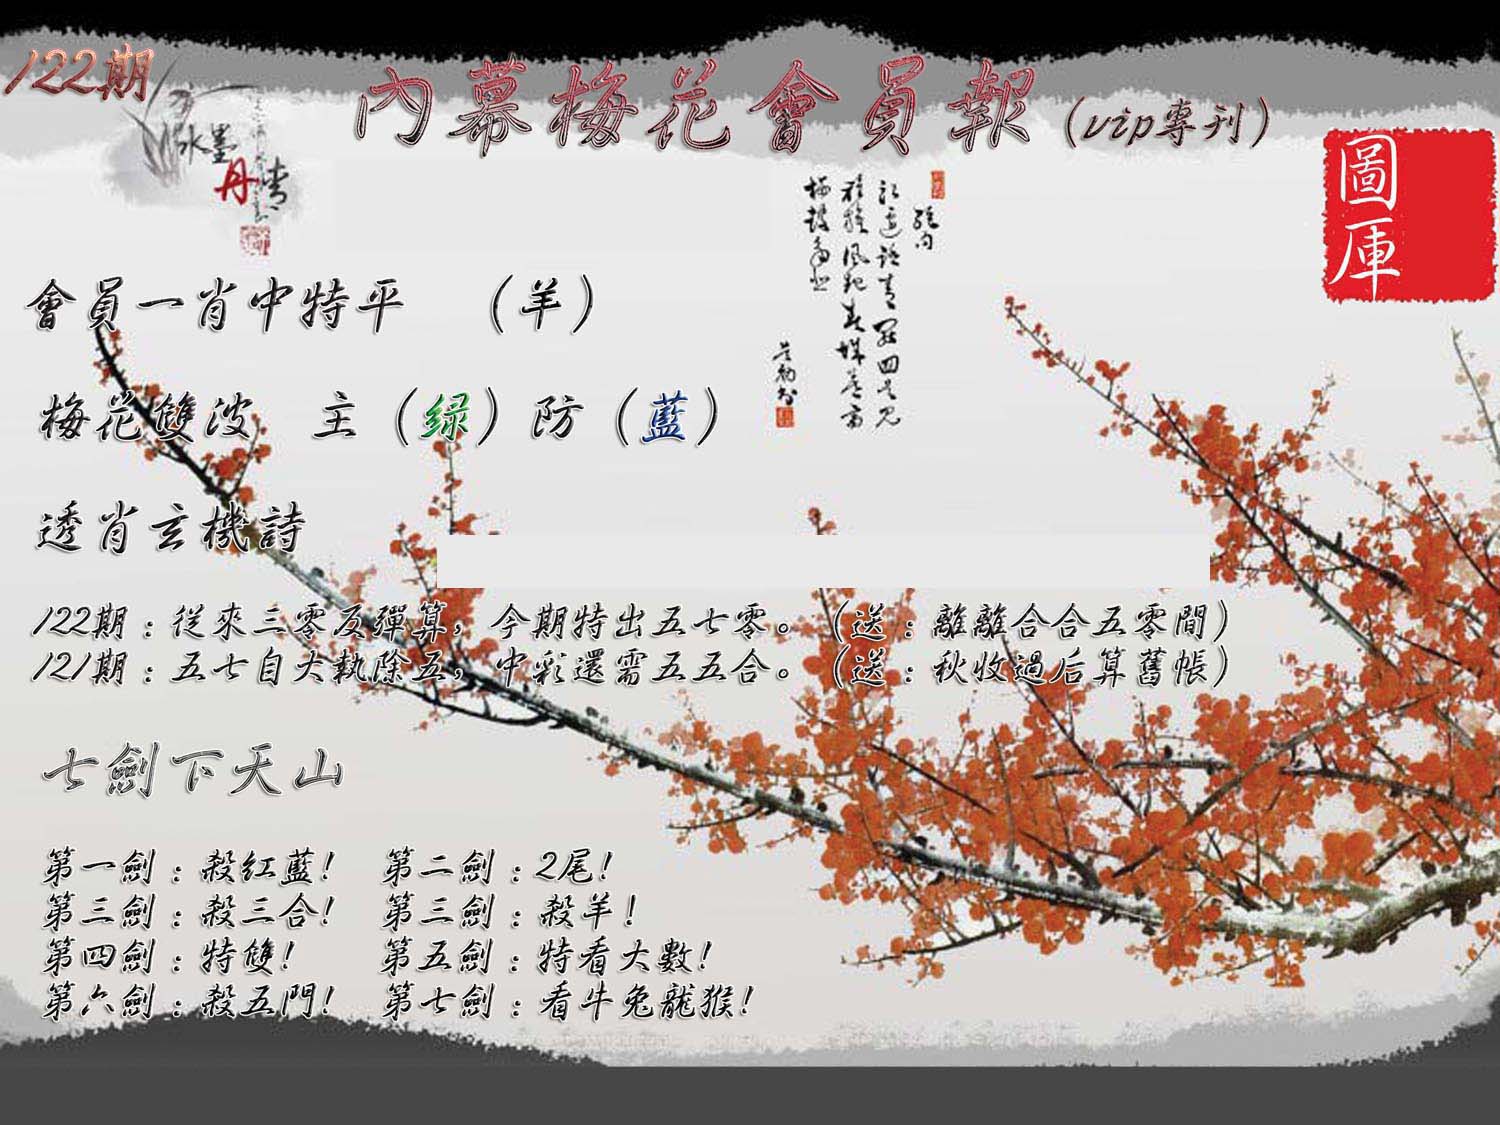 122期
內幕梅花會員報(vip專刊)
水墨
丹青
圖庫
會員一肖中特平 (羊)
梅花雙波 主(绿)防(藍)
透肖玄機詩
122期:従來三零反彈算,今期特出五七零。(送:離離合合五零間)
121期:五七自大執除五,中彩還需五五合。(送:秋收過后算舊帳)
七劍下天山
第一劍:殺紅藍! 第二劍:2尾!
第三劍:殺三合! 第三劍:殺羊!
第四劍:特雙! 第五劍:特看大數!
第六劍:殺五門! 第七劍:看牛兔龍猴!